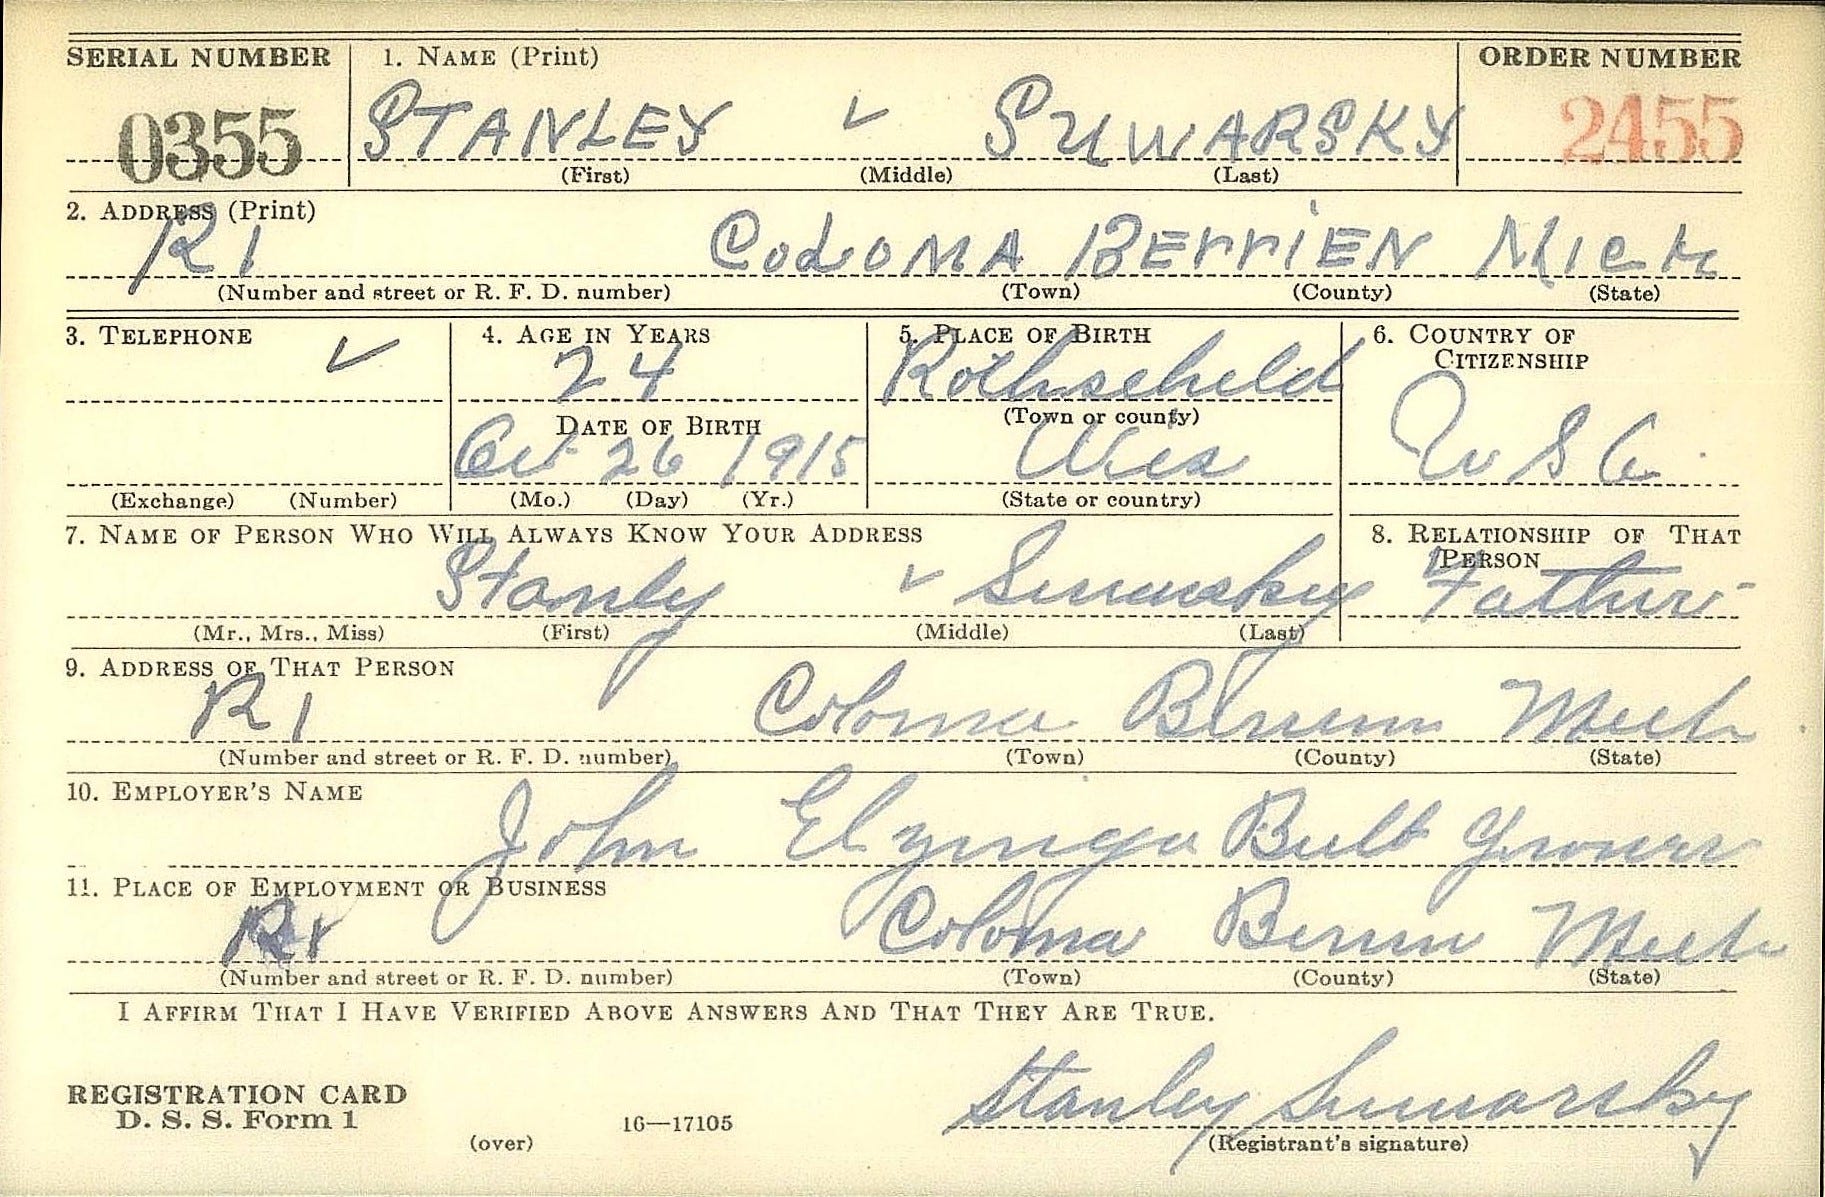 SERIAL NUMBER 1. NAME (Print) ORDER NUMBER
0355 STANLEY SUWARSKY 2455
(First) (Middle) (Last)
2. ADDRESS (Print)
R 1 COLOMA BERRIEN MICH
(Number and street or R. F. D. number) (Town) (County) (State)
3. TELEPHONE 4. AGE IN YEARS 5. PLACE OF BIRTH 6. COUNTRY OF CITIZENSHIP
24 Rothscheld
DATE OF BIRTH (Town or county)
Oct 26 1915 Wis U S A
(Exchange) (Number) (Mo.) (Day) (Yr.) (State or country)
7. NAME OF PERSON WHO WILL ALWAYS KNOW YOUR ADDRESS 8. RELATIONSHIP OF THAT PERSON
Stanly Suwarsky Father
(Mr., Mrs., Miss) (First) (Middle) (Last)
9. ADDRESS OF THAT PERSON
R 1 Coloma Berrien Mich
(Number and street or R. F. D. number) (Town) (County) (State)
10. EMPLOYER'S NAME
John Elzinga Bulb Grower
11. PLACE OF EMPLOYMENT OR BUSINESS
R 1 Coloma Berrien Mich
(Number and street or R. F. D. number) (Town) (County) (State)
I AFFIRM THAT I HAVE VERIFIED ABOVE ANSWERS AND THAT THEY ARE TRUE.
REGISTRATION CARD
D. S. S. Form 1
(over) 16—17105
Stanley Suwarsky
(Registrant's signature)